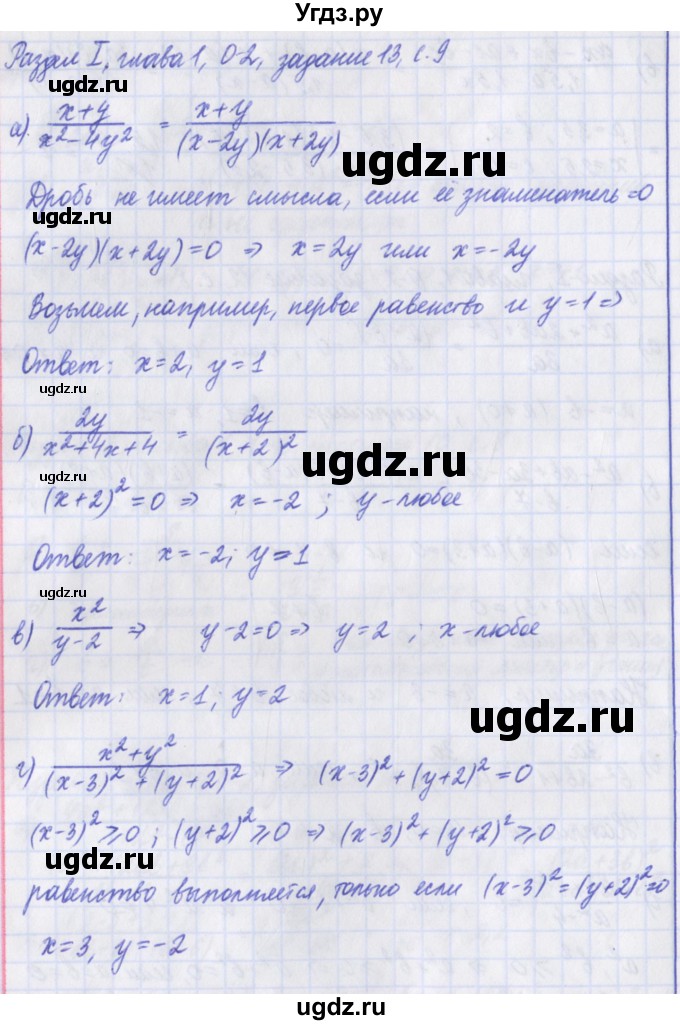 Угдз.ру
Раздел I, глава 1, О-2, задание 13, с.9
а) (x+y)/(x²-4y²) = (x+y)/((x-2y)(x+2y))
ugdz.ru
ugdz.ru
Дробь не имеет смысла, если её знаменатель =0
ugdz.ru
(x-2y)(x+2y)=0 ⇒ x=2y или x=-2y
Возьмем, например, первое равенство и y=1 ⇒
Ответ: x=2, y=1
ugdz.ru
б) 2y/(x²+4x+4) = 2y/(x+2)²
ugdz.ru
(x+2)²=0 ⇒ x=-2 ; y-любое
Ответ: x=-2; y=1
ugdz.ru
в) x²/(y-2) ⇒ y-2=0 ⇒ y=2 ; x-любое
Ответ: x=1; y=2
ugdz.ru
ugdz.ru
г) (x²+y²)/((x-3)²+(y+2)²) ⇒ (x-3)²+(y+2)²=0
(x-3)²⩾0 ; (y+2)²⩾0 ⇒ (x-3)²+(y+2)²⩾0
ugdz.ru
равенство выполняется, только если (x-3)²=(y+2)²=0
x=3, y=-2
ugdz.ru
ugdz.ru